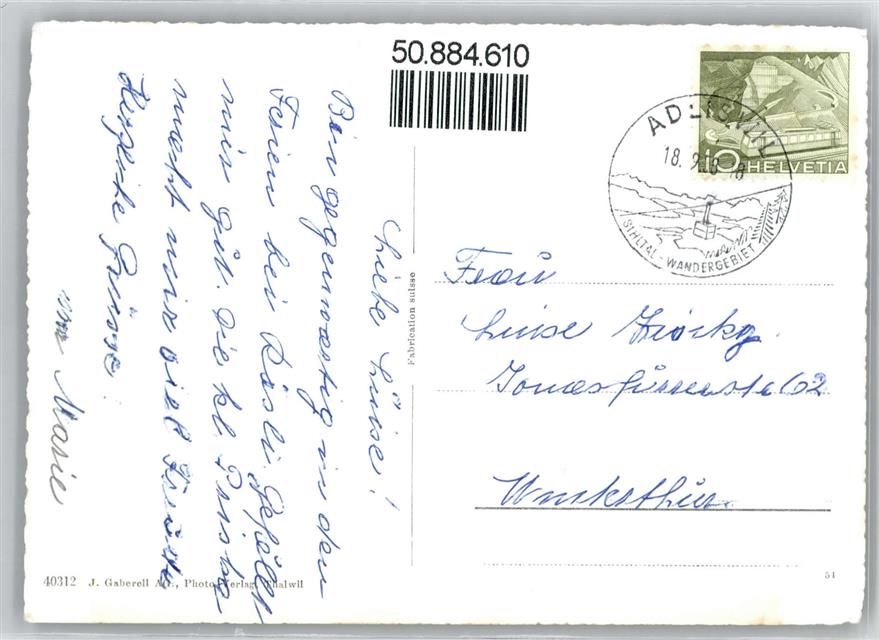 50.884.610
ADLISWIL
18. 9.
18
SIHLTAL - WANDERGEBIET
10 HELVETIA
Liebe Luise!
Bin gegenwärtig in den
Ferien bei Rösli. Gefällt
mir gut. Die kl.
macht mir viel Freude
Herzliche Grüsse
von Marie
Frau
Luise
62
Winterthur
Fabrication suisse
40312 J. Gaberell A.G., Photo Verlag, Thalwil
51